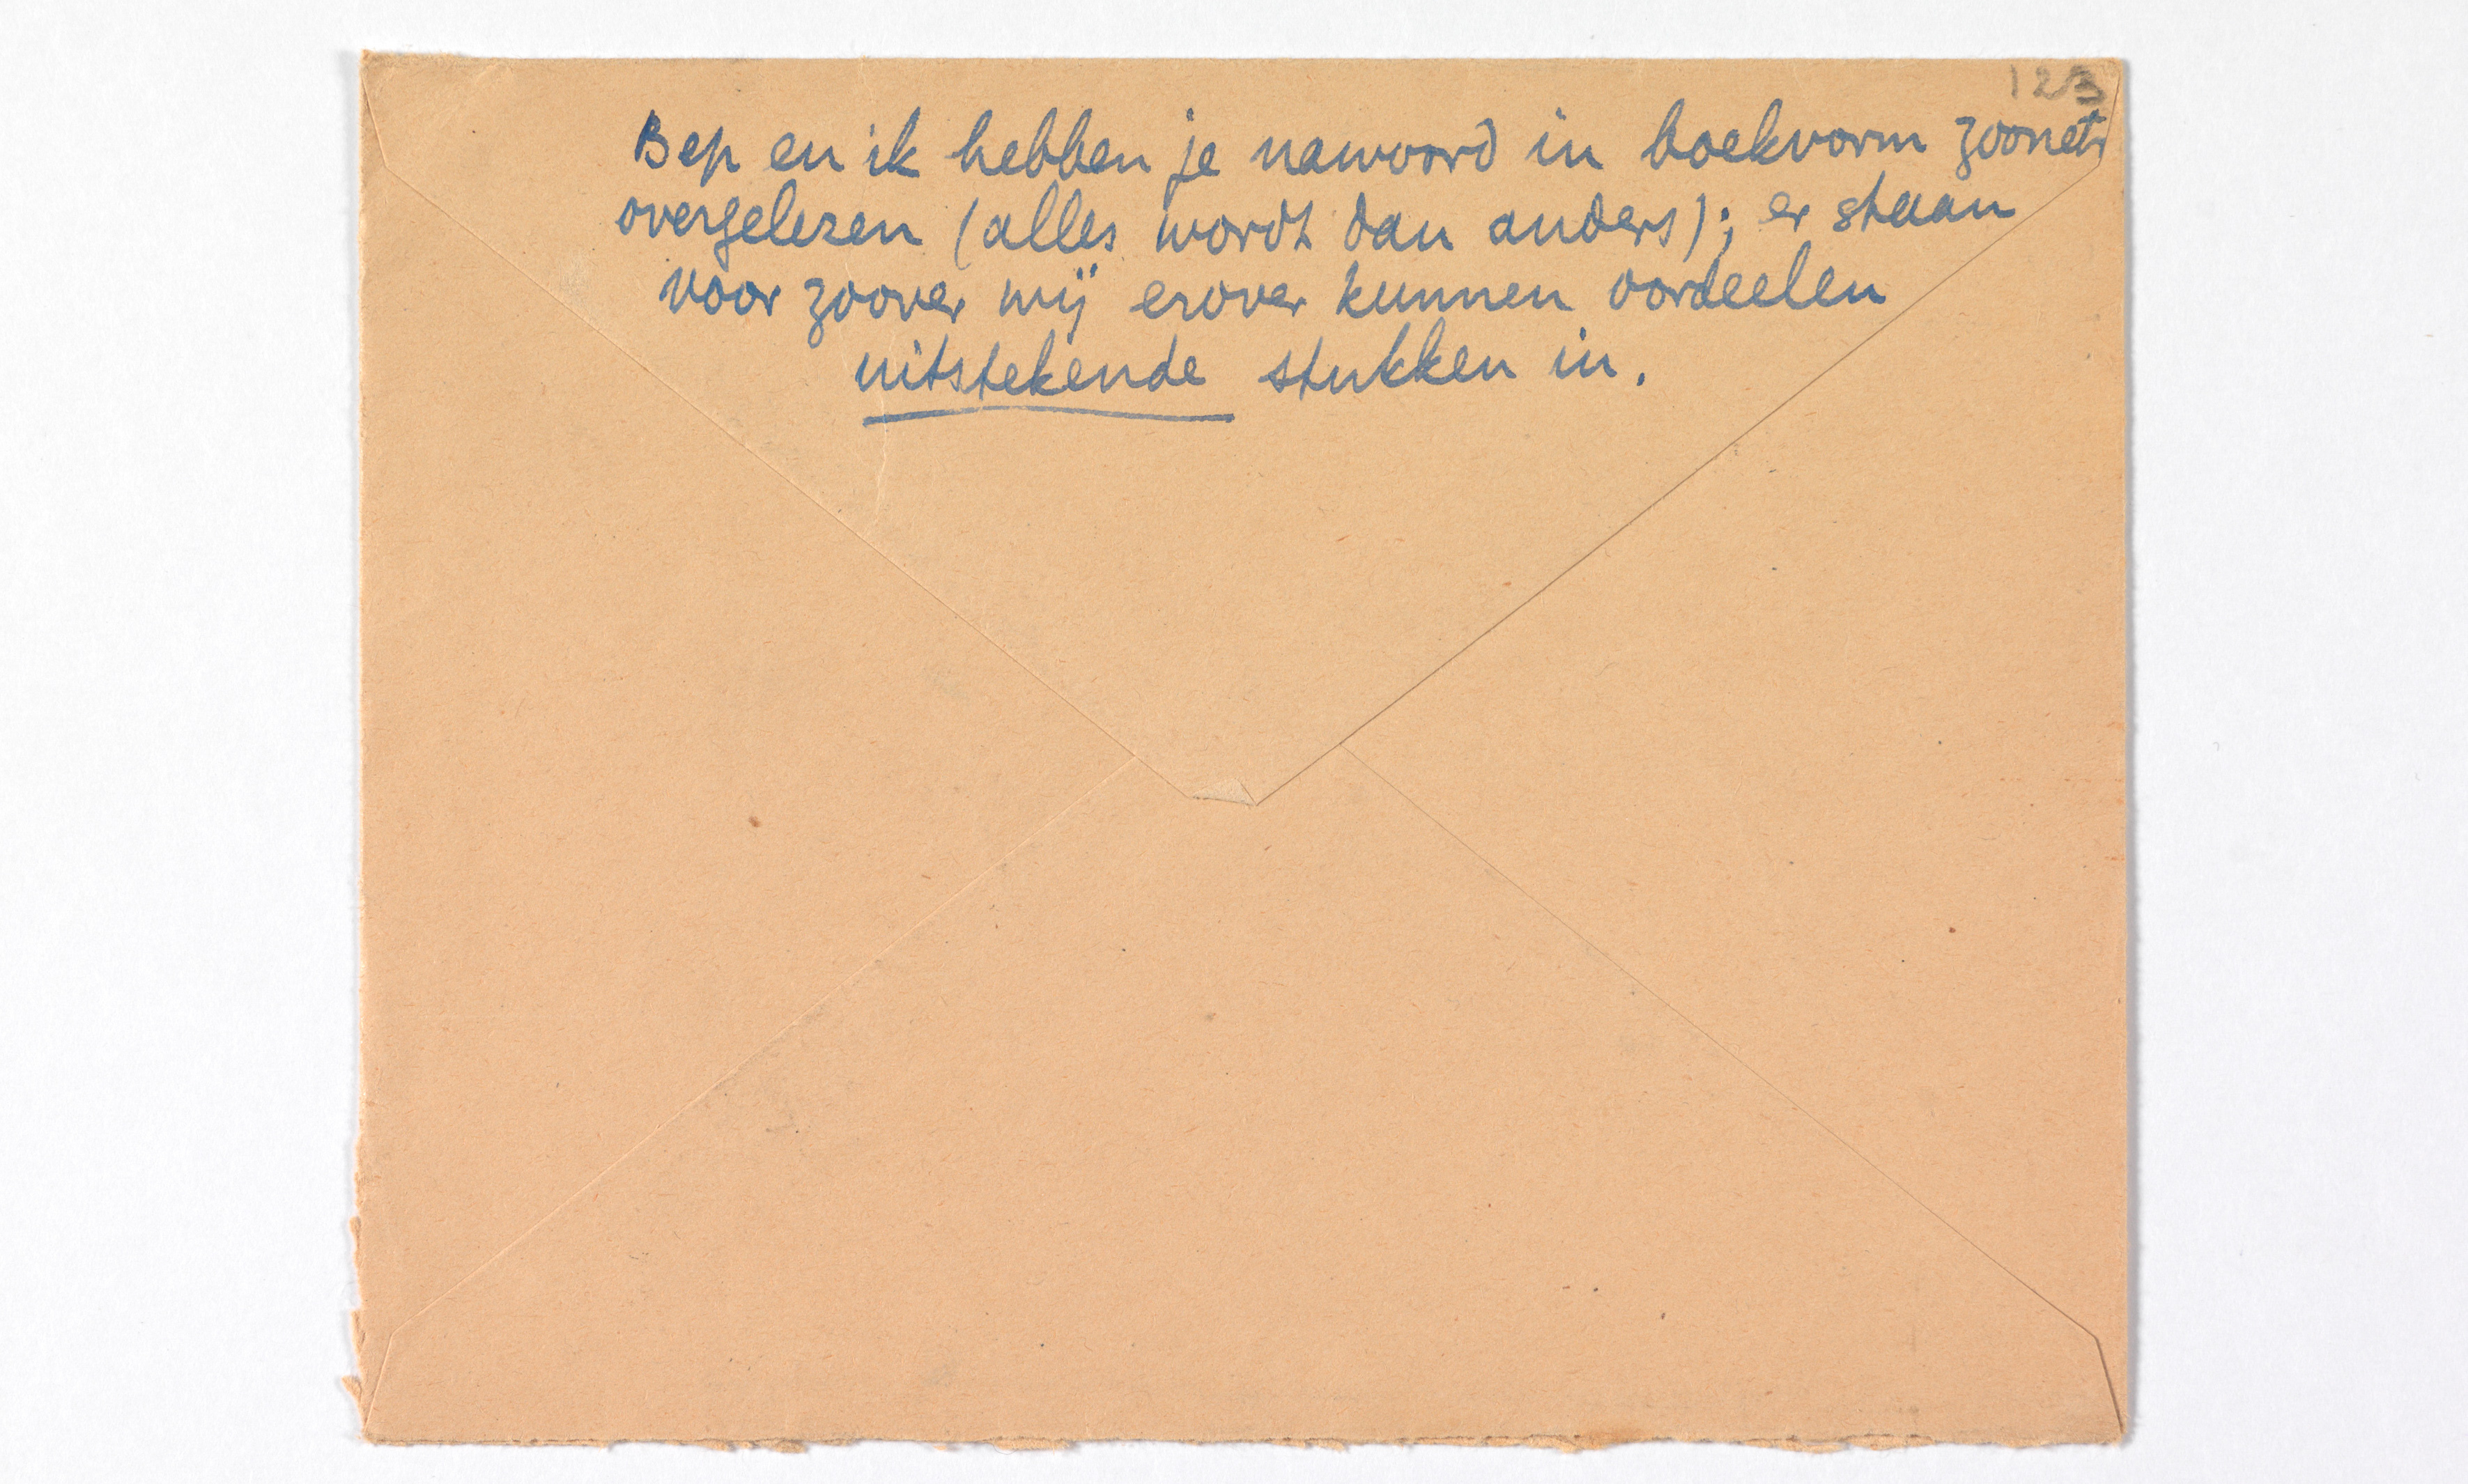 123
Bep en ik hebben je nawoord in boekvorm zoonet
overgelezen (alles wordt dan anders); er staan
voor zoover wij erover kunnen oordeelen
uitstekende stukken in.